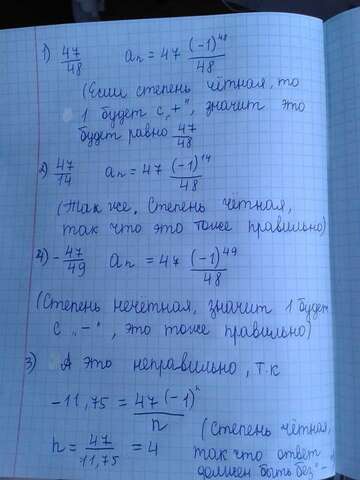 1) 47/48 aₙ = 47 (-1)⁴⁸/48
(Если степень чётная, то
1 будет с „+", значит это
будет равно 47/48
2) 47/14 aₙ = 47 (-1)¹⁴/48
(Так же, степень чётная,
так что это тоже правильно)
4) -47/49 aₙ = 47 (-1)⁴⁹/48
(Степень нечетная, значит 1 будет
с „-", это тоже правильно)
3) А это неправильно, т.к
-11,75 = 47 (-1)ⁿ/n
n = 47/11,75 = 4 (Степень чётная,
так что ответ
должен быть без „-"